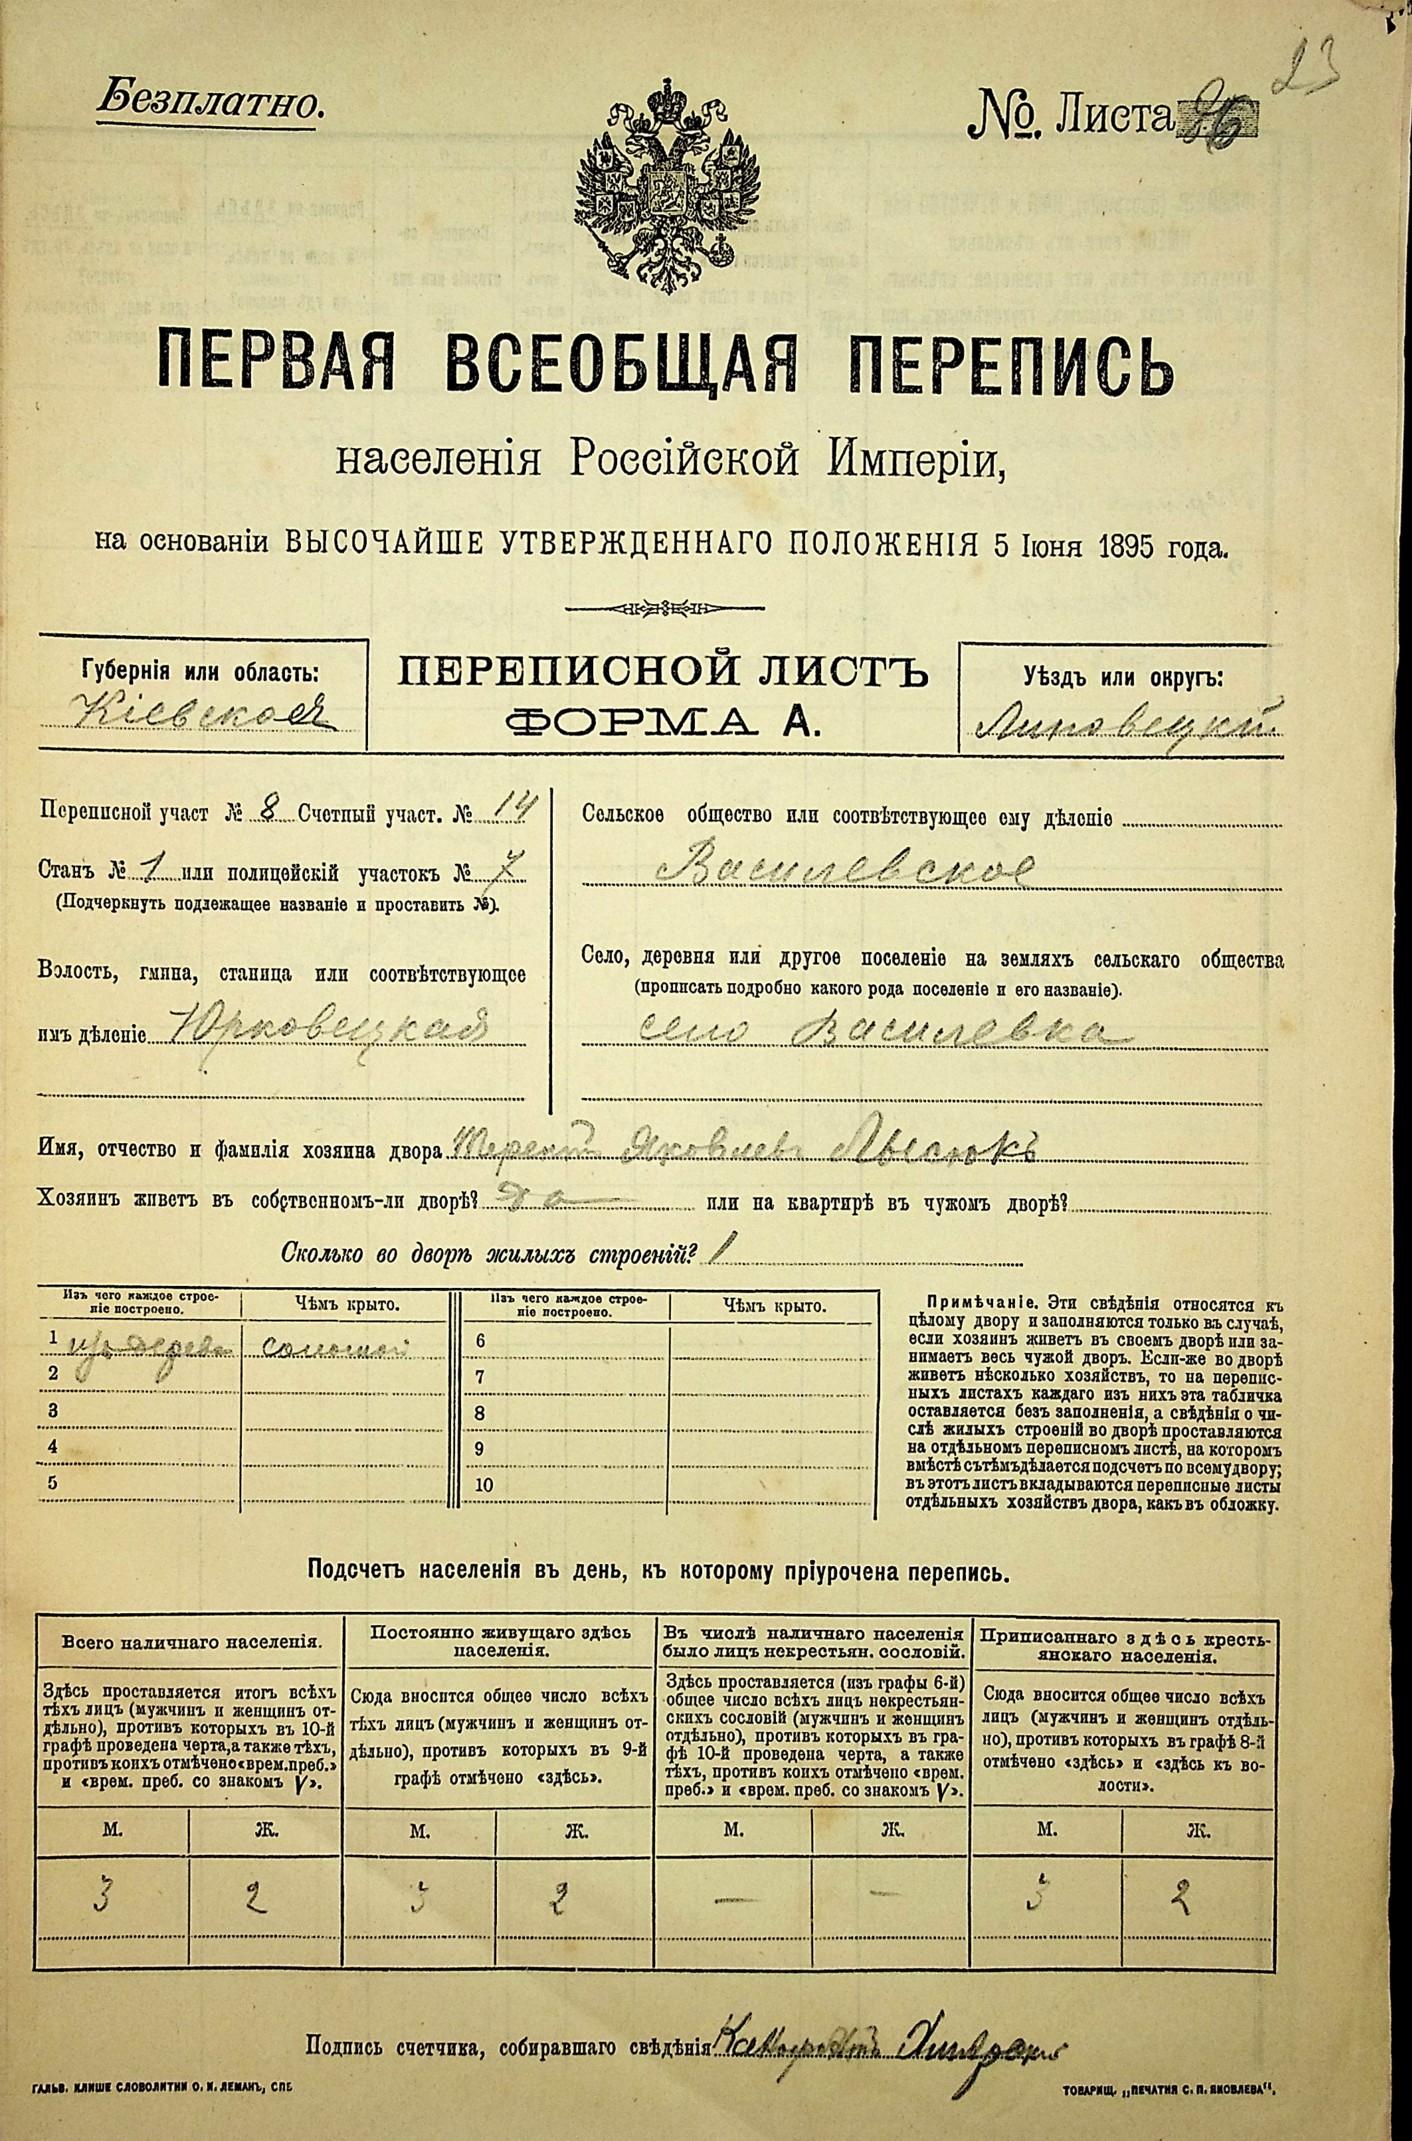 23
Безплатно.
№. Листа 26
ПЕРВАЯ ВСЕОБЩАЯ ПЕРЕПИСЬ
населенія Россійской Имперіи,
на основаніи ВЫСОЧАЙШЕ УТВЕРЖДЕННАГО ПОЛОЖЕНІЯ 5 Іюня 1895 года.
Губернія или область:
Кіевская
ПЕРЕПИСНОЙ ЛИСТЪ
ФОРМА А.
Уѣздъ или округъ:
Липовецкій
Переписной участ № 8 Счетный участ. № 14
Станъ № 1 или полицейскій участокъ № 7
(Подчеркнуть подлежащее названіе и проставить №).
Волость, гмина, станица или соотвѣтствующее
имъ дѣленіе Юрковецкая
Сельское общество или соотвѣтствующее ему дѣленіе
Василевское
Село, деревня или другое поселеніе на земляхъ сельскаго общества
(прописать подробно какого рода поселеніе и его названіе).
село Василевка
Имя, отчество и фамилія хозяина двора Терентій Яковлевъ Лысюкъ
Хозяинъ живетъ въ собственномъ-ли дворѣ? да или на квартирѣ въ чужомъ дворѣ?
Сколько во дворѣ жилыхъ строеній? 1
Изъ чего каждое строе-
ніе построено.
Чѣмъ крыто.
Изъ чего каждое строе-
ніе построено.
Чѣмъ крыто.
1 изъ дерева соломой 6
2 7
3 8
4 9
5 10
Примѣчаніе. Эти свѣдѣнія относятся къ
цѣлому двору и заполняются только въ случаѣ,
если хозяинъ живетъ въ своемъ дворѣ или за-
нимаетъ весь чужой дворъ. Если-же во дворѣ
живетъ нѣсколько хозяйствъ, то на перепис-
ныхъ листахъ каждаго изъ нихъ эта табличка
оставляется безъ заполненія, а свѣдѣнія о чи-
слѣ жилыхъ строеній во дворѣ проставляются
на отдѣльномъ переписномъ листѣ, на которомъ
вмѣстѣ съ тѣмъ дѣлается подсчетъ по всему двору;
въ этотъ листъ вкладываются переписные листы
отдѣльныхъ хозяйствъ двора, какъ въ обложку.
Подсчетъ населенія въ день, къ которому пріурочена перепись.
Всего наличнаго населенія.
Здѣсь проставляется итогъ всѣхъ
тѣхъ лицъ (мужчинъ и женщинъ от-
дѣльно), противъ которыхъ въ 10-й
графѣ проведена черта, а также тѣхъ,
противъ коихъ отмѣчено «врем. преб.»
и «врем. преб. со знакомъ V».
Постоянно живущаго здѣсь
населенія.
Сюда вносится общее число всѣхъ
тѣхъ лицъ (мужчинъ и женщинъ от-
дѣльно), противъ которыхъ въ 9-й
графѣ отмѣчено «здѣсь».
Въ числѣ наличнаго населенія
было лицъ некрестьян. сословій.
Здѣсь проставляется (изъ графы 6-й)
общее число всѣхъ лицъ некрестьян-
скихъ сословій (мужчинъ и женщинъ
отдѣльно), противъ которыхъ въ гра-
фѣ 10-й проведена черта, а также
тѣхъ, противъ коихъ отмѣчено «врем.
преб.» и «врем. преб. со знакомъ V».
Приписаннаго здѣсь кресть-
янскаго населенія.
Сюда вносится общее число всѣхъ
лицъ (мужчинъ и женщинъ отдѣль-
но), противъ которыхъ въ графѣ 8-й
отмѣчено «здѣсь» и «здѣсь къ во-
лости».
М. Ж. М. Ж. М. Ж. М. Ж.
3 2 3 2 — — 3 2
Подпись счетчика, собиравшаго свѣдѣнія
ГАЛЬВ. КЛИШЕ СЛОВОЛИТНИ О. И. ЛЕМАНЪ, СПБ
ТОВАРИЩ. „ПЕЧАТНЯ С. П. ЯКОВЛЕВА".